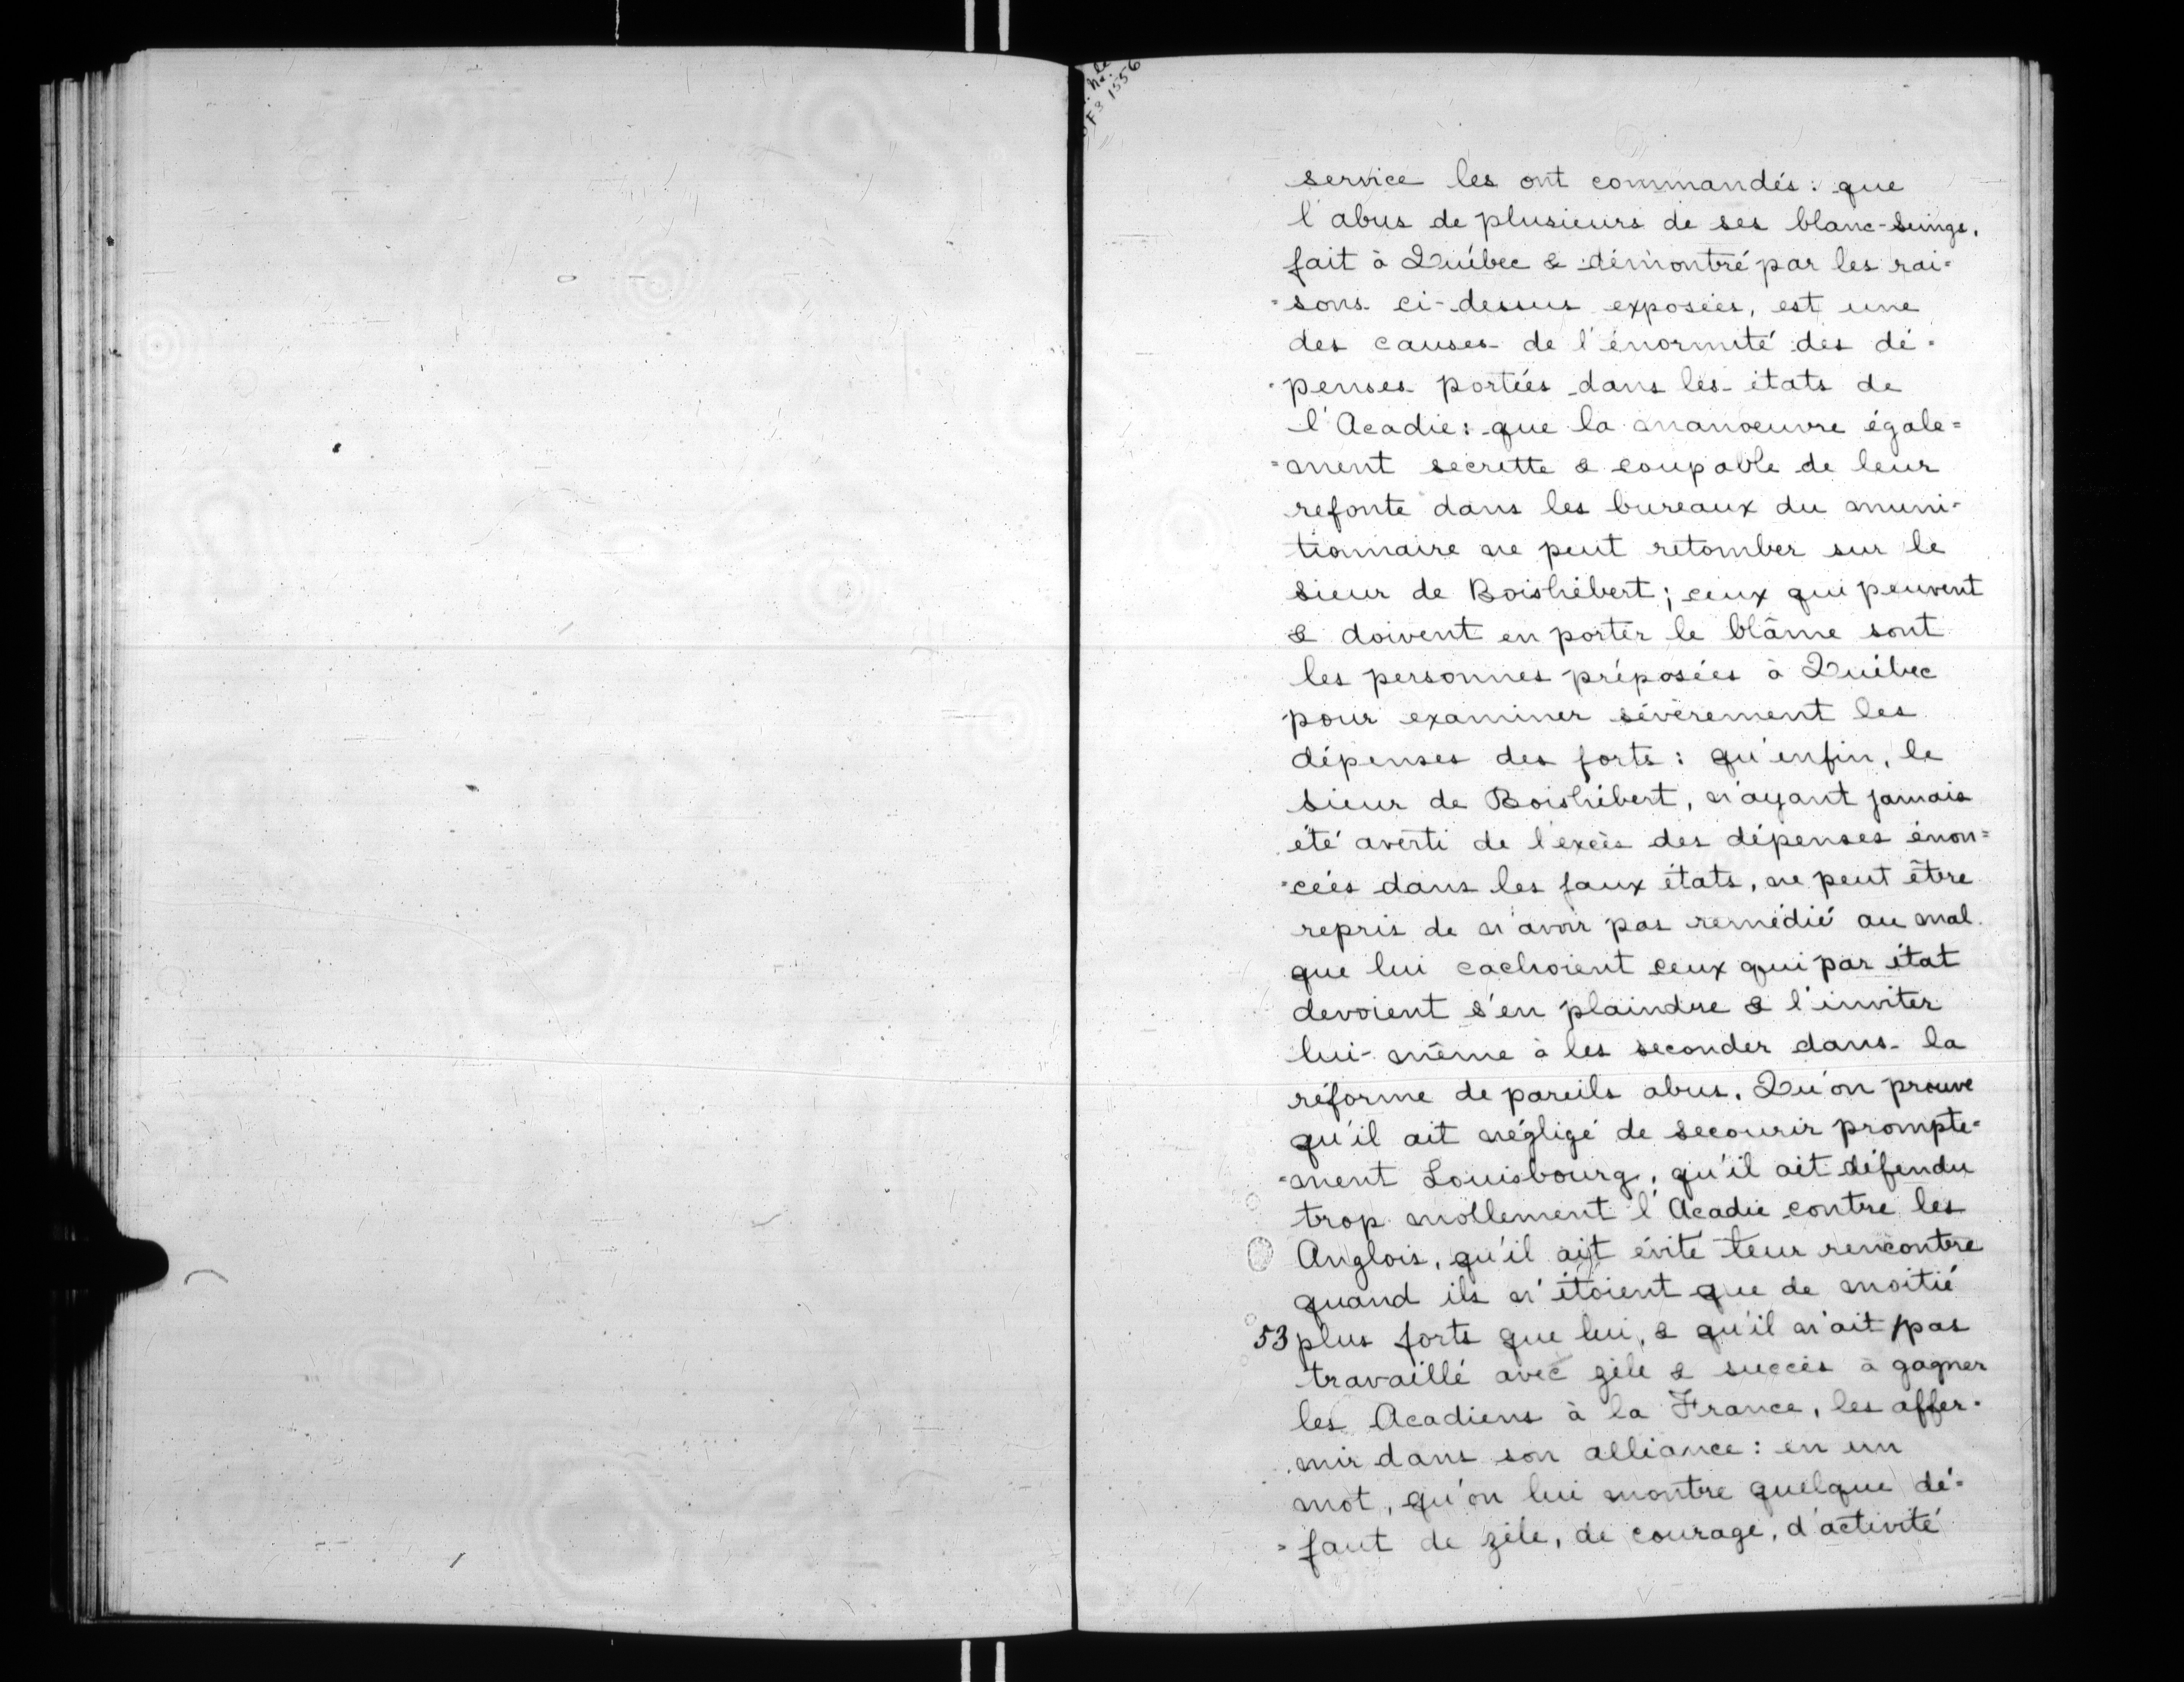 F3 1556
service les ont commandés: que
l'abus de plusieurs de ses blanc-seings,
fait à Québec & démontré par les rai=
=sons ci-dessus exposées, est une
des causes de l'énormité des dé=
=penses portées dans les états de
l'Acadie: que la manoeuvre égale=
=ment secrette & coupable de leur
refonte dans les bureaux du muni=
tionnaire ne peut retomber sur le
sieur de Boishébert; ceux qui peuvent
& doivent en porter le blâme sont
les personnes préposées à Québec
pour examiner sévèrement les
dépenses des forts: qu'enfin, le
sieur de Boishébert, n'ayant jamais
été averti de l'excès des dépenses énon=
=cées dans les faux états, ne peut être
repris de n'avoir pas remédié au mal
que lui cachoient ceux qui par état
devoient s'en plaindre & l'inviter
lui-même à les seconder dans la
réforme de pareils abus. Qu'on prouve
qu'il ait négligé de secourir prompte=
=ment Louisbourg, qu'il ait défendu
trop mollement l'Acadie contre les
Anglois, qu'il ait évité leur rencontre
quand ils n'étoient que de moitié
53 plus forts que lui, & qu'il n'ait pas
travaillé avec zèle & succès à gagner
les Acadiens à la France, les affer=
mir dans son alliance: en un
mot, qu'on lui montre quelque dé=
=faut de zèle, de courage, d'activité